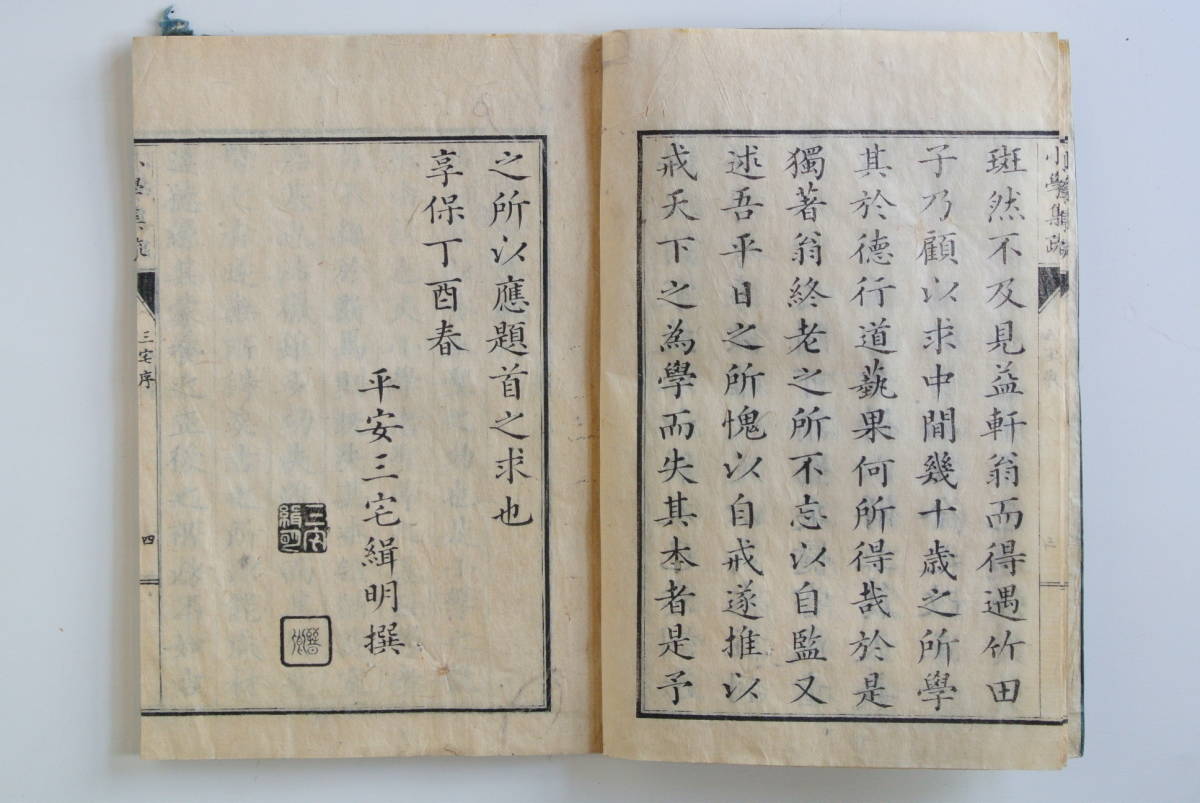 小學集疏
斑然不及見益軒翁而得遇竹田
子乃顧以求中間幾十歳之所學
其於德行道藝果何所得哉於是
獨著翁終老之所不忘以自監又
述吾平日之所愧以自戒遂推以
戒天下之為學而失其本者是予
之所以應題首之求也
享保丁酉春
平安三宅緝明撰
三宅緝明
三宅序
四